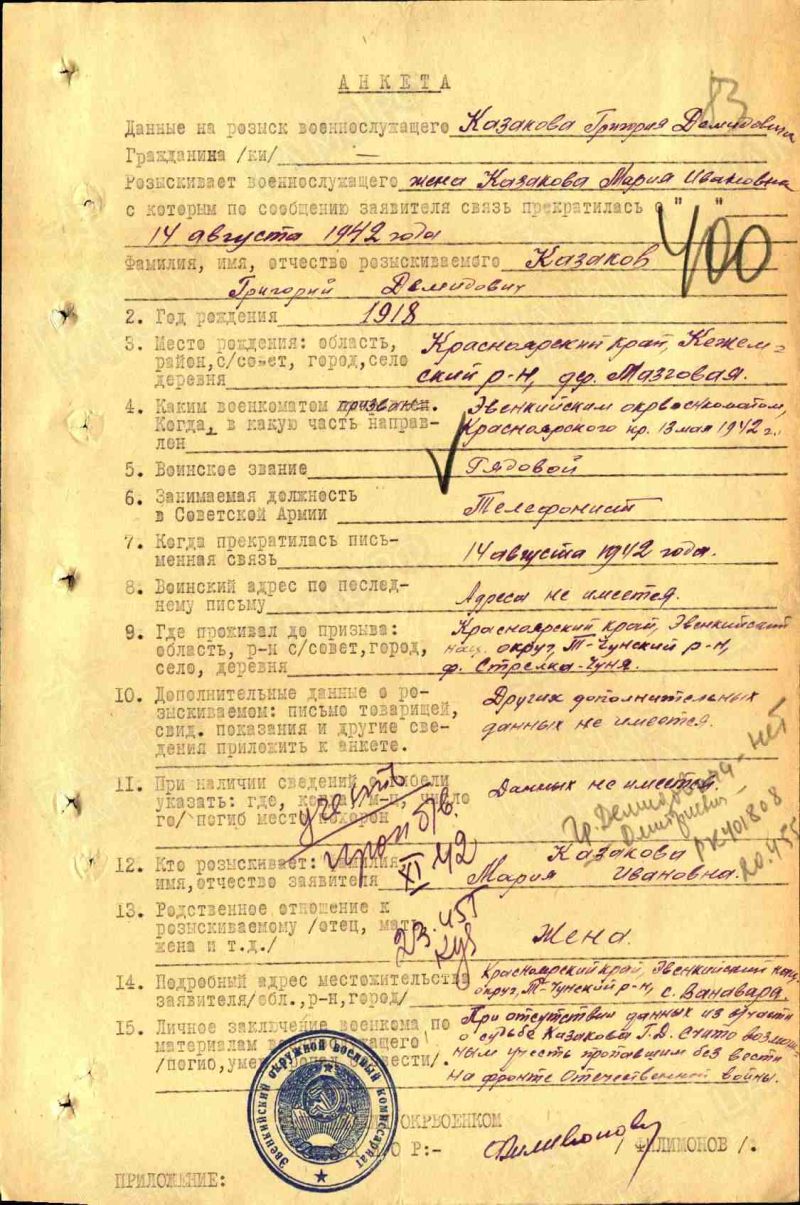 83
АНКЕТА
Данные на розыск военнослужащего Казакова Григория Демидовича
Гражданина /ки/ —
Розыскивает военнослужащего жена Казакова Мария Ивановна
с которым по сообщению заявителя связь прекратилась с " "
14 августа 1942 года
400
Фамилия, имя, отчество розыскиваемого Казаков
Григорий Демидович
2. Год рождения 1918
3. Место рождения: область, Красноярский край, Кежем-
район,с/совет, город,село
деревня ский р-н, дер. Мозговая.
4. Каким военкоматом призван. Эвенкийским окрвоенкоматом,
Когда, в какую часть направ- Красноярского кр. 13 мая 1942 г.
лен
5. Воинское звание Рядовой
6. Занимаемая должность
в Советской Армии Телефонист
7. Когда прекратилась пись-
менная связь 14 августа 1942 года.
8. Воинский адрес по послед-
нему письму Адреса не имеется.
9. Где проживал до призыва: Красноярский край, Эвенкийский
область, р-н с/совет,город, нац. округ, Т-Чунский р-н,
село, деревня ф. Стрелка-Чуня.
10. Дополнительные данные о ро- Других дополнительных
зыскиваемом: письмо товарищей,
свид. показания и другие све- данных не имеется.
дения приложить к анкете.
11. При наличии сведений Данных не имеется.
указать: где,
го/ погиб место похорон
учесть
проп б/в.
XI 42
Гр. Демидовича - нет
Дмитриевич
РК 401808
12. Кто розыскивает: фамилия Казакова
имя,отчество заявителя Мария Ивановна.
13. Родственное отношение к
розыскиваемому /отец, мать
жена и т.д./ Жена.
14. Подробный адрес местожительства Красноярский край, Эвенкийский нац.
заявителя/обл.,р-н,город/ округ, Т-Чунский р-н, с. Ванавара.
15. Личное заключение военкома по При отсутствии данных из в/части
материалам о судьбе Казакова Г.Д. считаю возмож-
/погиб, вести/. ным учесть пропавшим без вести
на фронте Отечественной войны.
ОКРВОЕНКОМ
Р:- Филимонов / ФИЛИМОНОВ /.
Эвенкийский окружной военный комиссариат
ПРИЛОЖЕНИЕ: